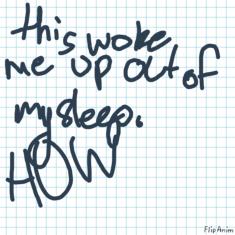 this woke
me up out of
my sleep.
HOW
FlipAnim